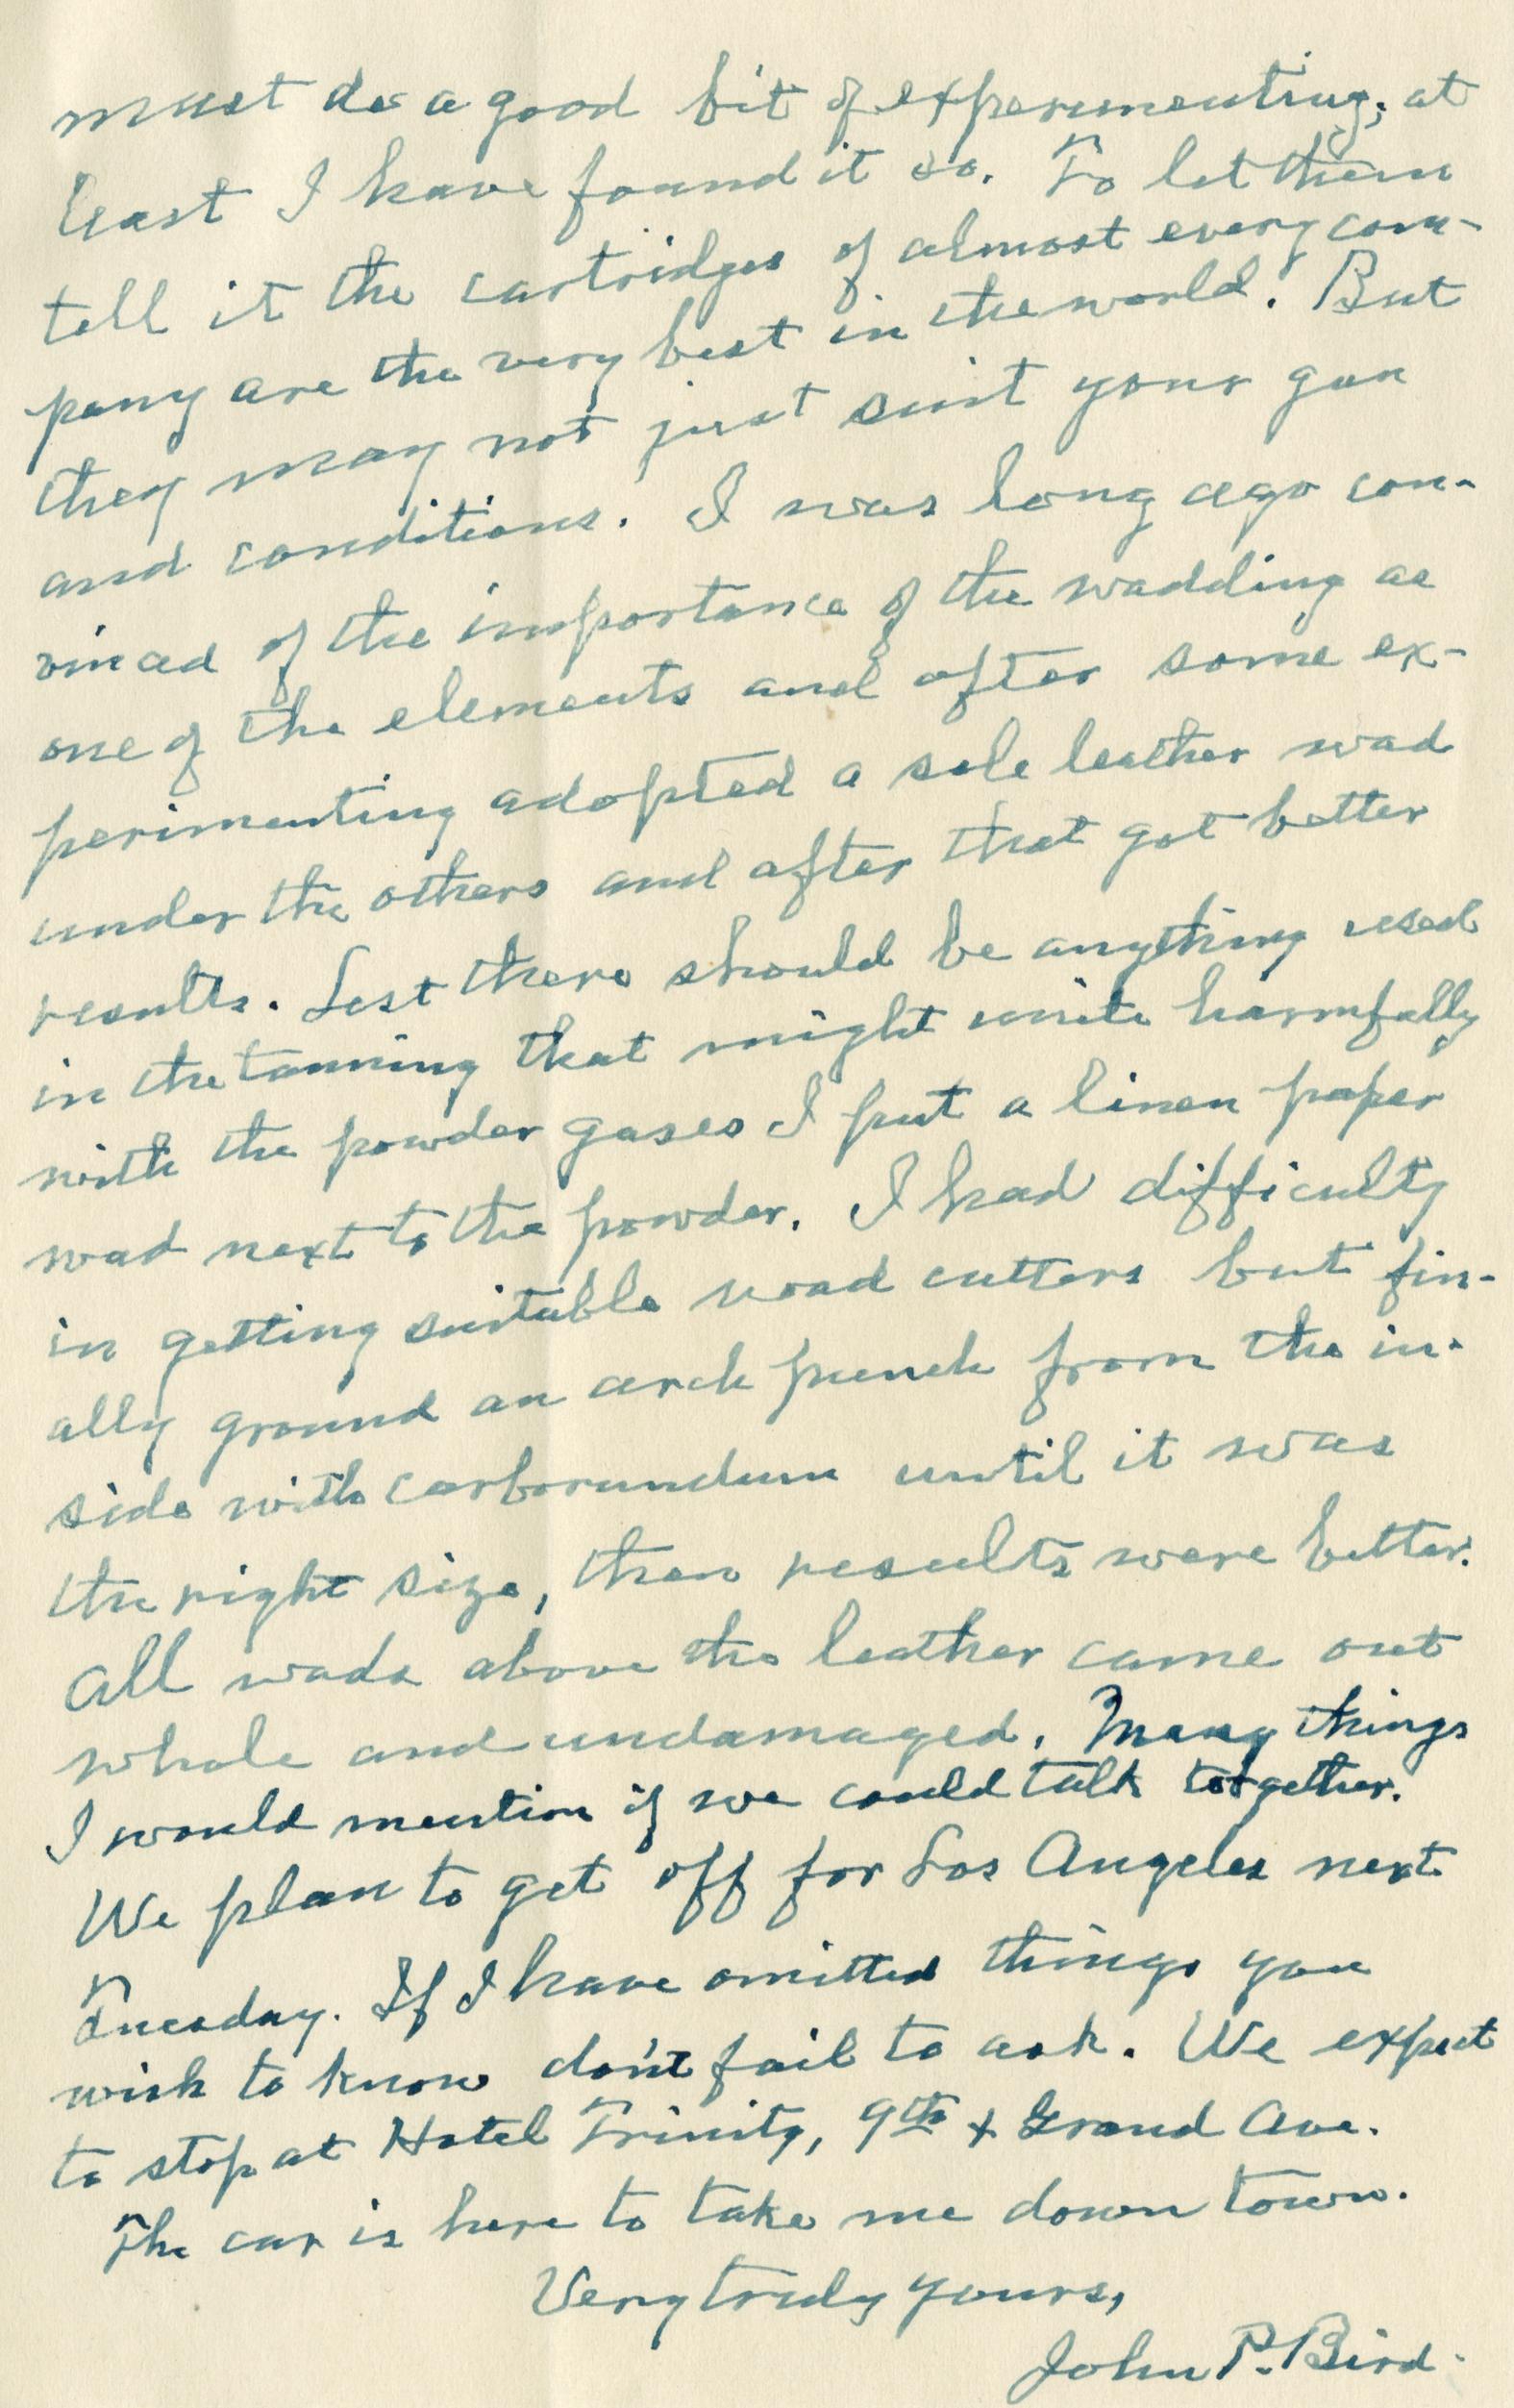 must do a good bit of experimenting; at
least I have found it so. To let them
tell it the cartridges of almost every com-
pany are the very best in the world. But
they may not just suit your gun
and conditions. I was long ago con-
vinced of the importance of the wadding as
one of the elements and after some ex-
perimenting adopted a sole leather wad
under the others and after that got better
results. Lest there should be anything used
in the tanning that might unite harmfully
with the powder gases I put a linen paper
wad next to the powder. I had difficulty
in getting suitable wad cutters but fin-
ally ground an arch punch from the in-
side with carborundum until it was
the right size, then results were better.
All wads above the leather came out
whole and undamaged. Many things
I would mention if we could talk together.
We plan to get off for Los Angeles next
Tuesday. If I have omitted things you
wish to know don't fail to ask. We expect
to stop at Hotel Trinity, 9th & Grand Ave.
The car is here to take me down town.
Very truly yours,
John P. Bird.